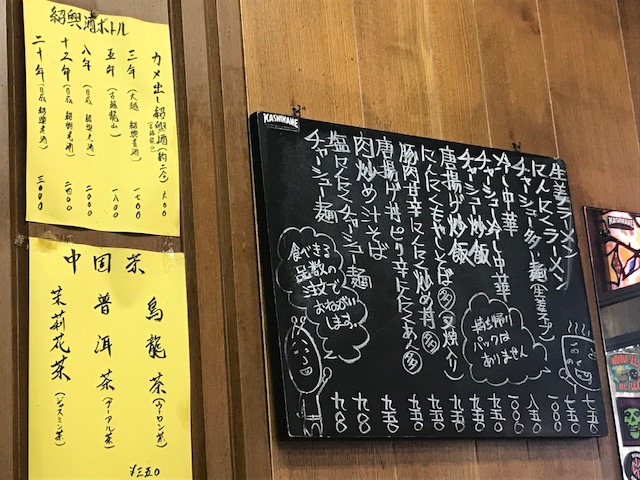 紹興酒ボトル
カメ出し紹興酒(約二合) 六〇〇
三年(大越 紹興貴酒) 一七〇〇
五年(古越龍山) 一八〇〇
八年 二〇〇〇
十五年 二四〇〇
二十年 三〇〇〇
中国茶
烏龍茶(ウーロン茶)
普洱茶(プーアル茶)
茉莉花茶(ジャスミン茶)
¥三五〇
KASHIKAME
生姜ラーメン 七五〇
にんにくラーメン 七五〇
チャーシュー多し麺(生姜チップ) 一〇〇〇
冷し中華 八五〇
チャーシュー冷し中華 一〇〇〇
チャーシュー炒飯 九五〇
唐揚げ炒飯 九五〇
にんにくもやしそば 多(叉焼入り) 九五〇
豚肉甘辛にんにく炒め丼 多 九五〇
唐揚げ丼ピリ辛にんにくあじ 多 九五〇
肉炒め汁そば
塩にんにくチャーシュー麺
チャーシュー麺
持ち帰り
パックは
ありません
食べきる
品数の
注文で
おねがい
します。